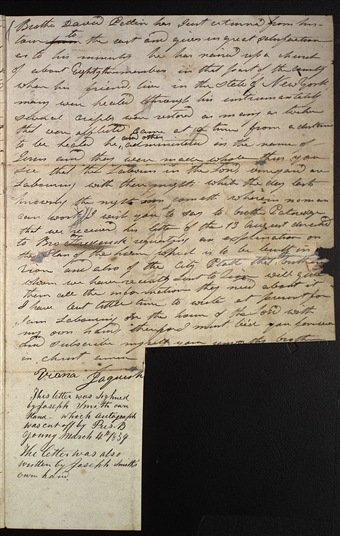 Brother David Pettin has Just returned from his
tour to the east and gives us great satisfaction
as to his ministry he has raised up a church
of about Eighty three members in that part of the country
where his friends live in the State of New York
many were healed through his instrumentality
several cripels were restored as many as twelve
that were afflicted came at a time from a distance
to be healed he and others administered in the name of
Jesus and they were made whole thus you
see that the Labourers in the Lords vineyard are
Labouring with their mights while the day lasts
knowing the night soon cometh wherein no man
can work I wish you to say to Brother
that we received his letter of the 13 August directed
to Bro requesting an explination on
the Plan of the house which is to be built in
Zion and also of the City Plott the
whom we have recently sent to will give
them all the information they need about it
I have but little time to write at present for
I am Labouring on the house of the Lord with
my own hands therefore I must bid you
and subscribe myself your
in christ
Viana Jaquish
This letter was sighned
by Joseph Smith own
Hand which autograph
was cut off by Pres. B
Young March 4th 1839
The letter was also
written by Joseph Smith's
own hand.